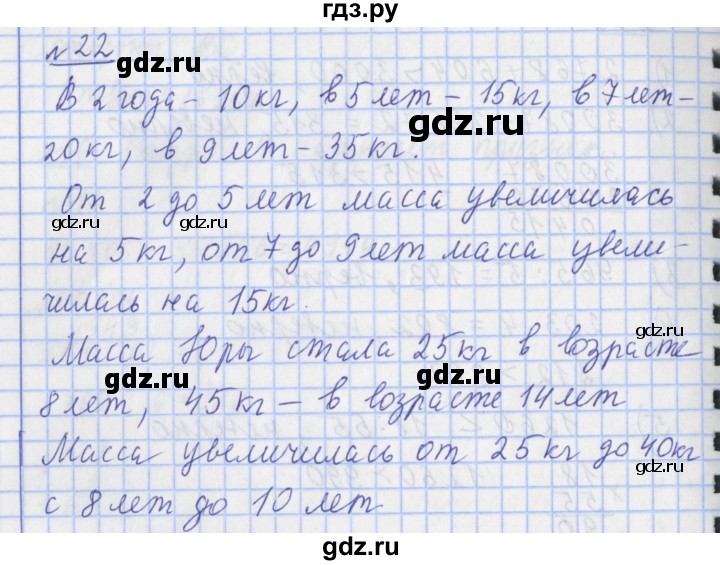 гдз.ру
№22
В 2 года - 10кг, в 5 лет - 15кг, в 7 лет -
20кг, в 9 лет - 35кг.
От 2 до 5 лет масса увеличилась
на 5кг, от 7 до 9 лет масса увели-
чилась на 15кг.
Масса Юры стала 25кг в возрасте
8 лет, 45кг - в возрасте 14 лет
Масса увеличилась от 25кг до 40кг
с 8 лет до 10 лет
gdz.ru
gdz.ru
gdz.ru
gdz.ru
gdz.ru
gdz.ru
gdz.ru
gdz.ru
gdz.ru
gdz.ru
gdz.ru
gdz.ru